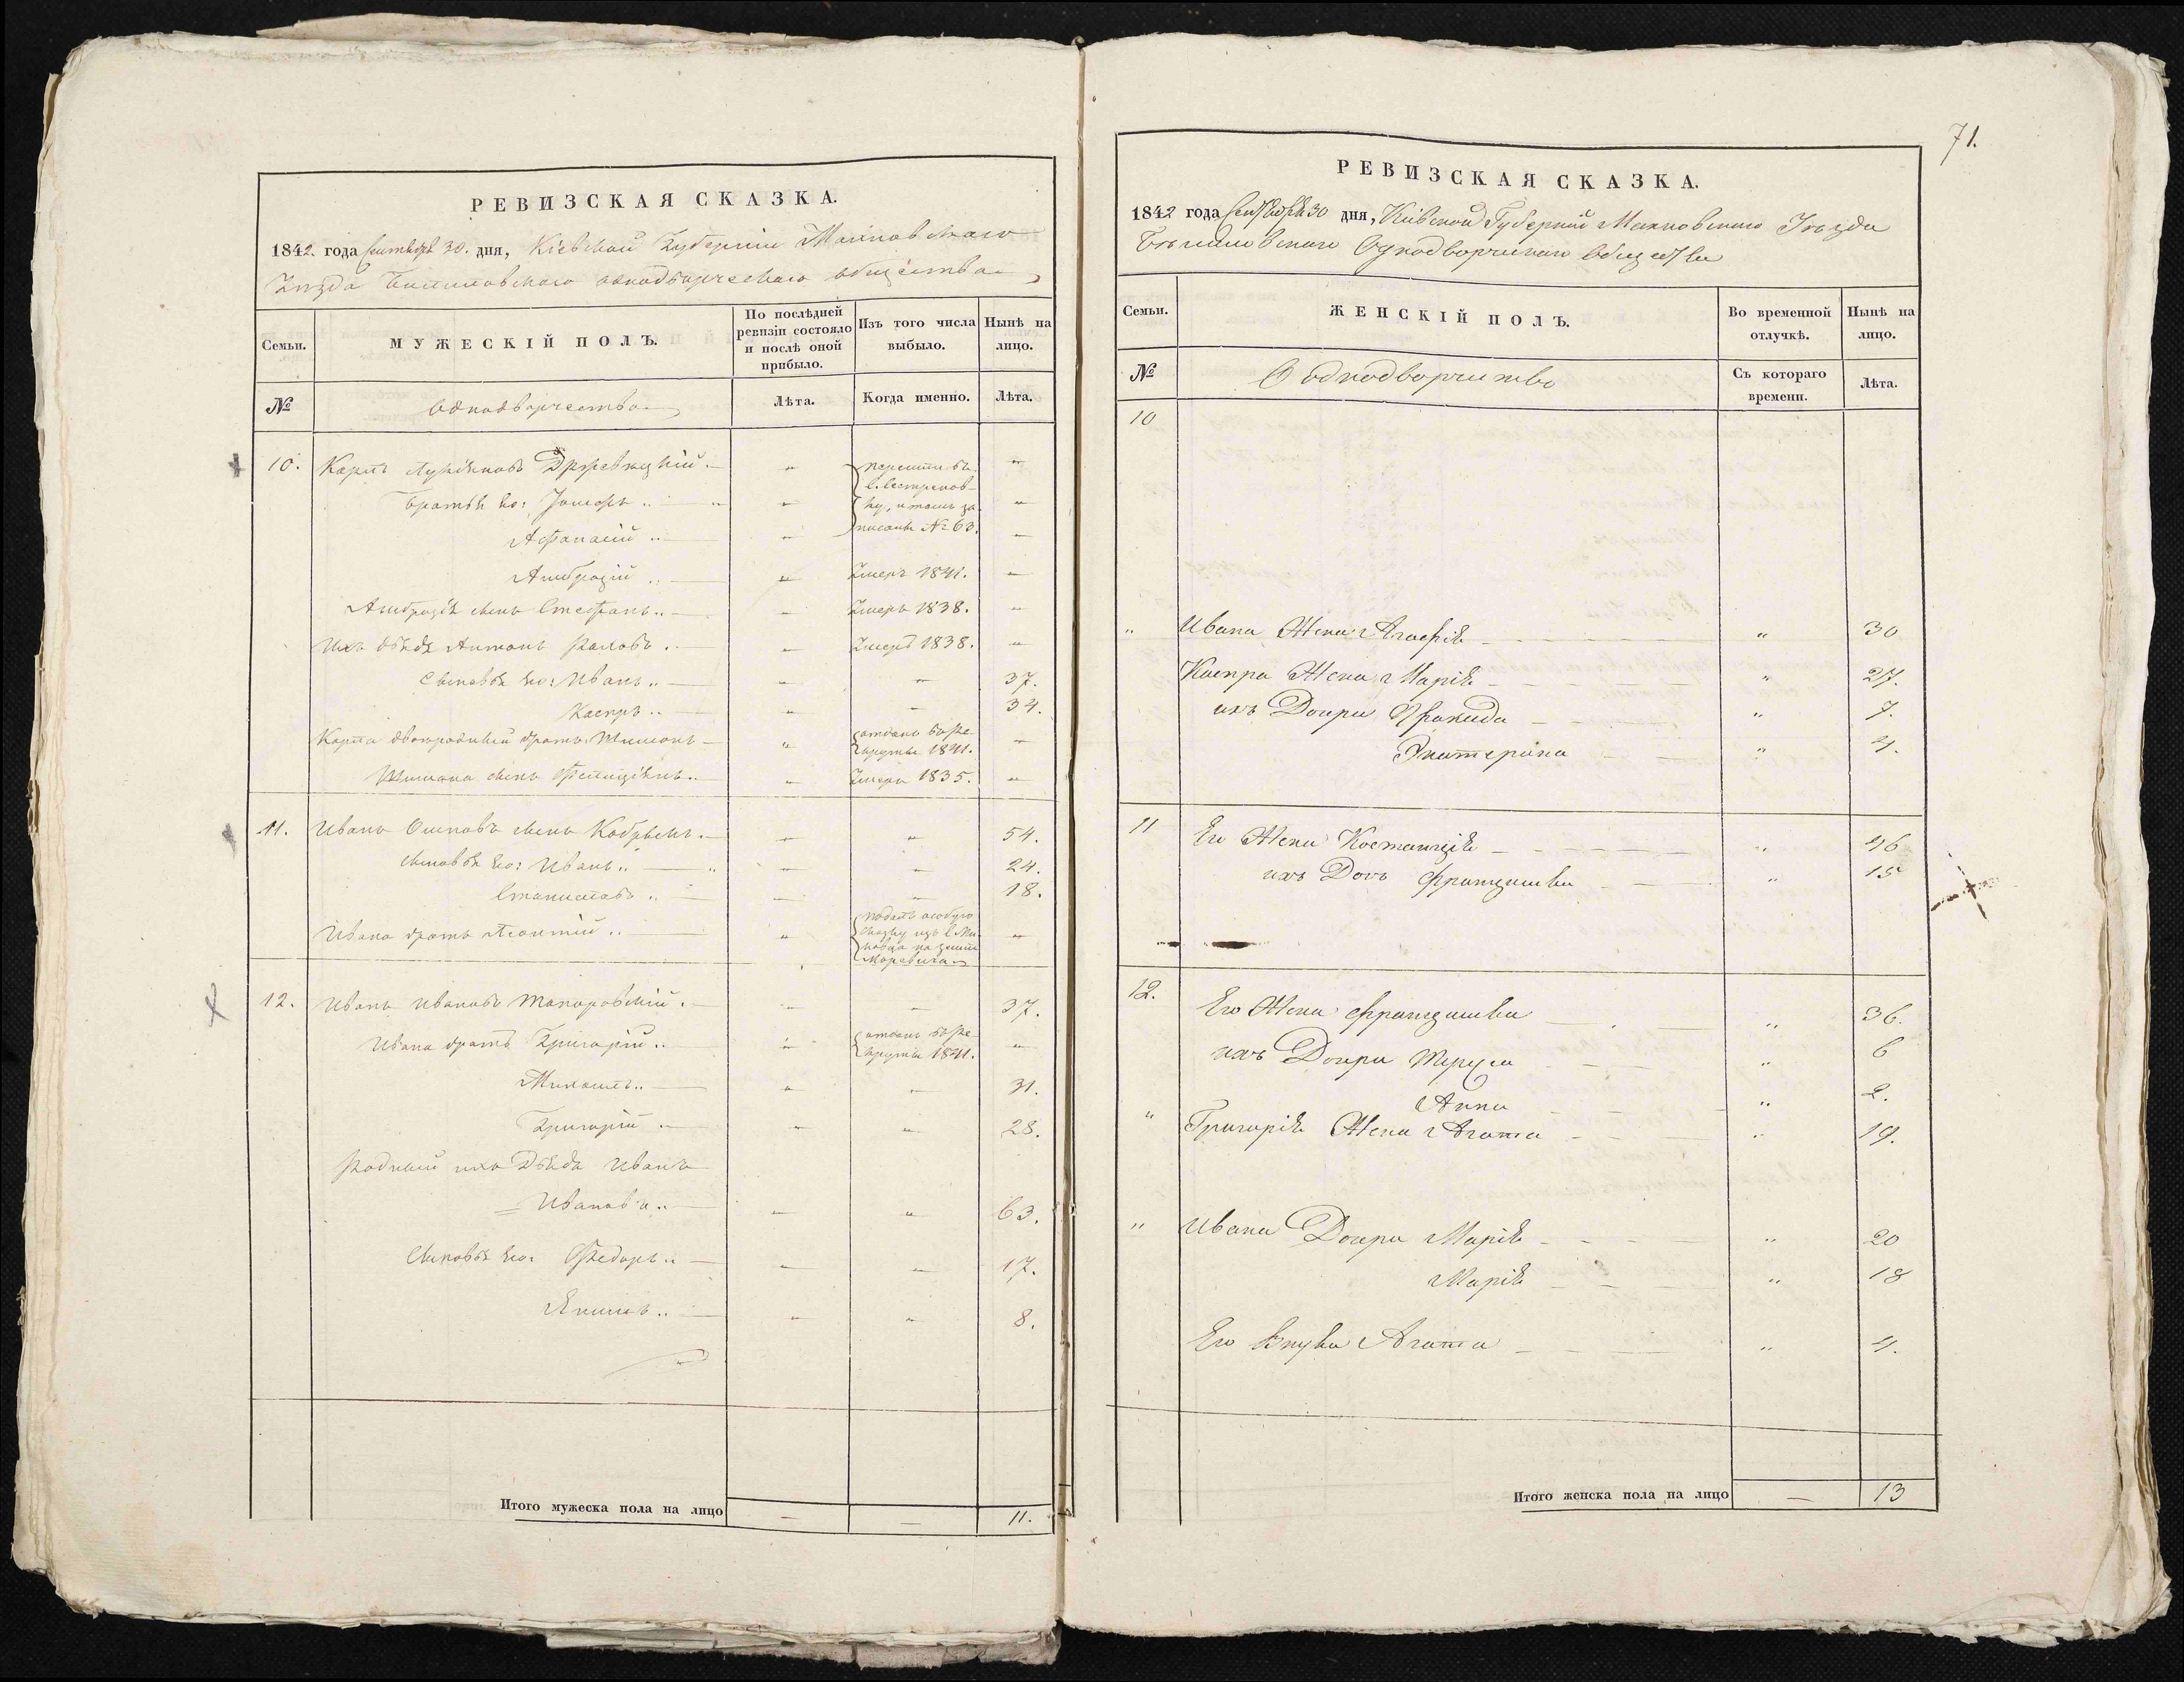 РЕВИЗСКАЯ СКАЗКА.
1842. года Сентября 30. дня, Кіевской Губерніи Махновскаго
Уѣзда однодворческаго общества
Семьи.
МУЖЕСКІЙ ПОЛЪ.
По послѣдней ревизіи состояло и послѣ оной прибыло.
Изъ того числа выбыло.
Нынѣ на лицо.
№
Однодворчество
Лѣта.
Когда именно.
Лѣта.
10. Карпъ Држевицкій. — " —
Братья его: Іосифъ .. — " —
перешли въ
с. Вестринов-
ку, и тамъ за-
писаны № 63.
Афанасій .. — " —
Амброзій .. — " Умеръ 1841. —
Амброзія сынъ Стефанъ .. — Умеръ 1838. —
Ихъ дѣдя Антонъ Павловъ .. — Умеръ 1838. —
Сыновья его: Иванъ .. — " — 37.
Касперъ .. — " — 34.
Карпа двоюродный братъ Шимонъ — " отданъ въ ре-
круты 1841. —
Шимона сынъ Фелиціянъ .. — " Умеръ 1835. —
11. Иванъ Осиповъ сынъ — " — 54.
сыновья его: Иванъ .. — " — 24.
Станиславъ .. — " — 18.
Ивана братъ Леонтій .. — "
подалъ особую
сказку изъ с.
на земли
12. Иванъ Ивановъ Тапоровскій. — " — 37.
Ивана братъ Григорій .. — " отданъ въ ре-
круты 1841. —
Михаилъ .. — " — 31.
Григорій .. — " — 28.
Родный ихъ Дядя Иванъ
Ивановъ .. — " — 63.
Сыновья его: Федоръ .. — " — 17.
Якимъ .. — " — 8.
Итого мужеска пола на лицо — — 11.
71.
РЕВИЗСКАЯ СКАЗКА.
1842 года Сентября 30 дня, Кіевской Губерніи Махновскаго Уѣзда
Однодворческаго Общества
Семьи.
ЖЕНСКІЙ ПОЛЪ.
Во временной отлучкѣ.
Нынѣ на лицо.
№
Однодворчество
Съ котораго времени.
Лѣта.
10
" Ивана Жена — " 30
Каспра Жена Марія — " 27.
ихъ Дочри — " 7.
Екатерина — " 4.
11 Его Жена Костанція — " 46
ихъ Дочь Францишка — " 15
12. Его Жена Францишка — " 36.
ихъ Дочри Тереса — " 6
Анна — " 2.
" Григорія Жена Агата — " 19.
" Ивана Дочри Марія — " 20
Марія — " 18
Его Внука Агата — " 4.
Итого женска пола на лицо — 13